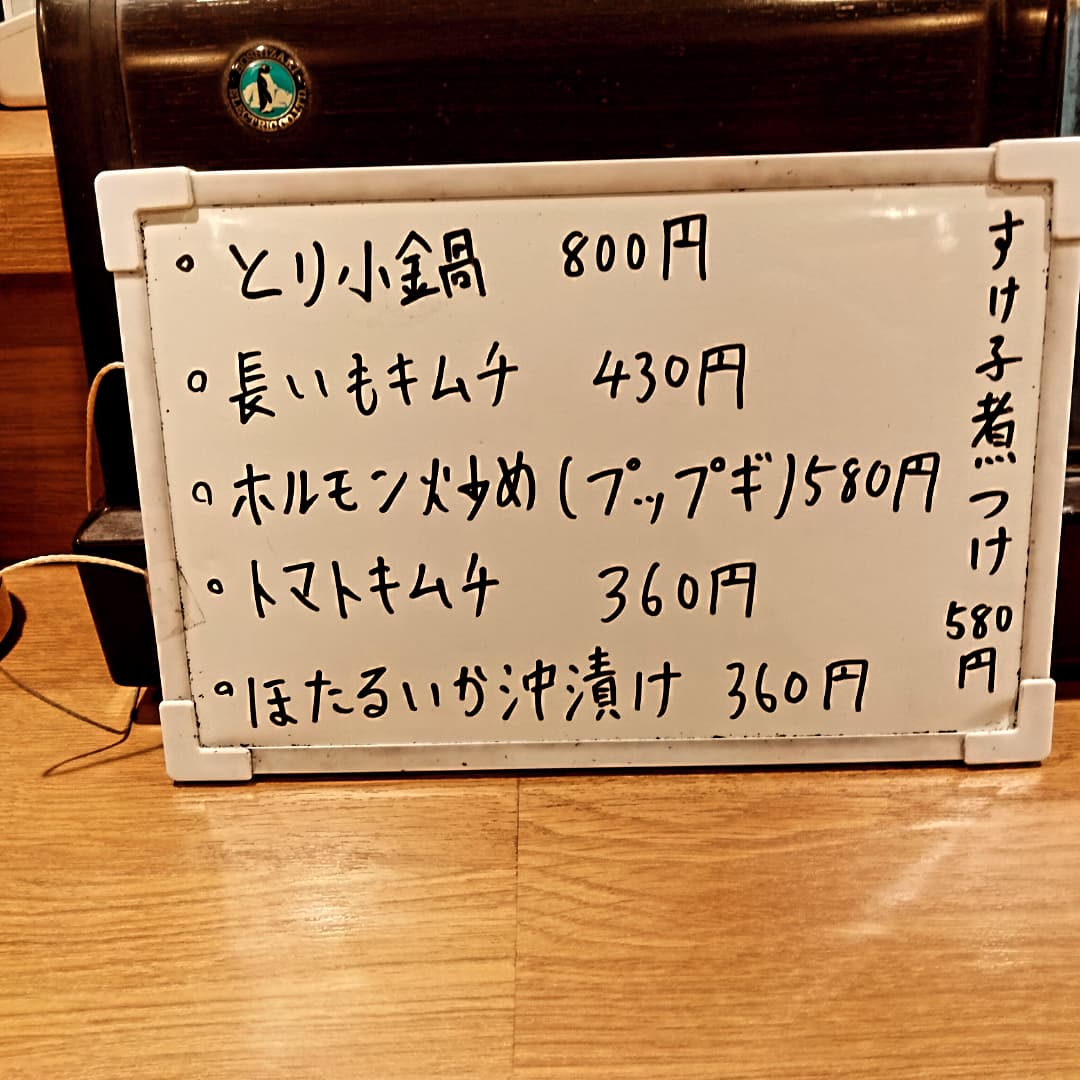 HOSHIZAKI ELECTRIC CO.,LTD.
○ とり小鍋 800円
○ 長いもキムチ 430円
○ ホルモン炒め(プップギ)580円
○ トマトキムチ 360円
○ ほたるいか沖漬け 360円
すけ子煮つけ 580円